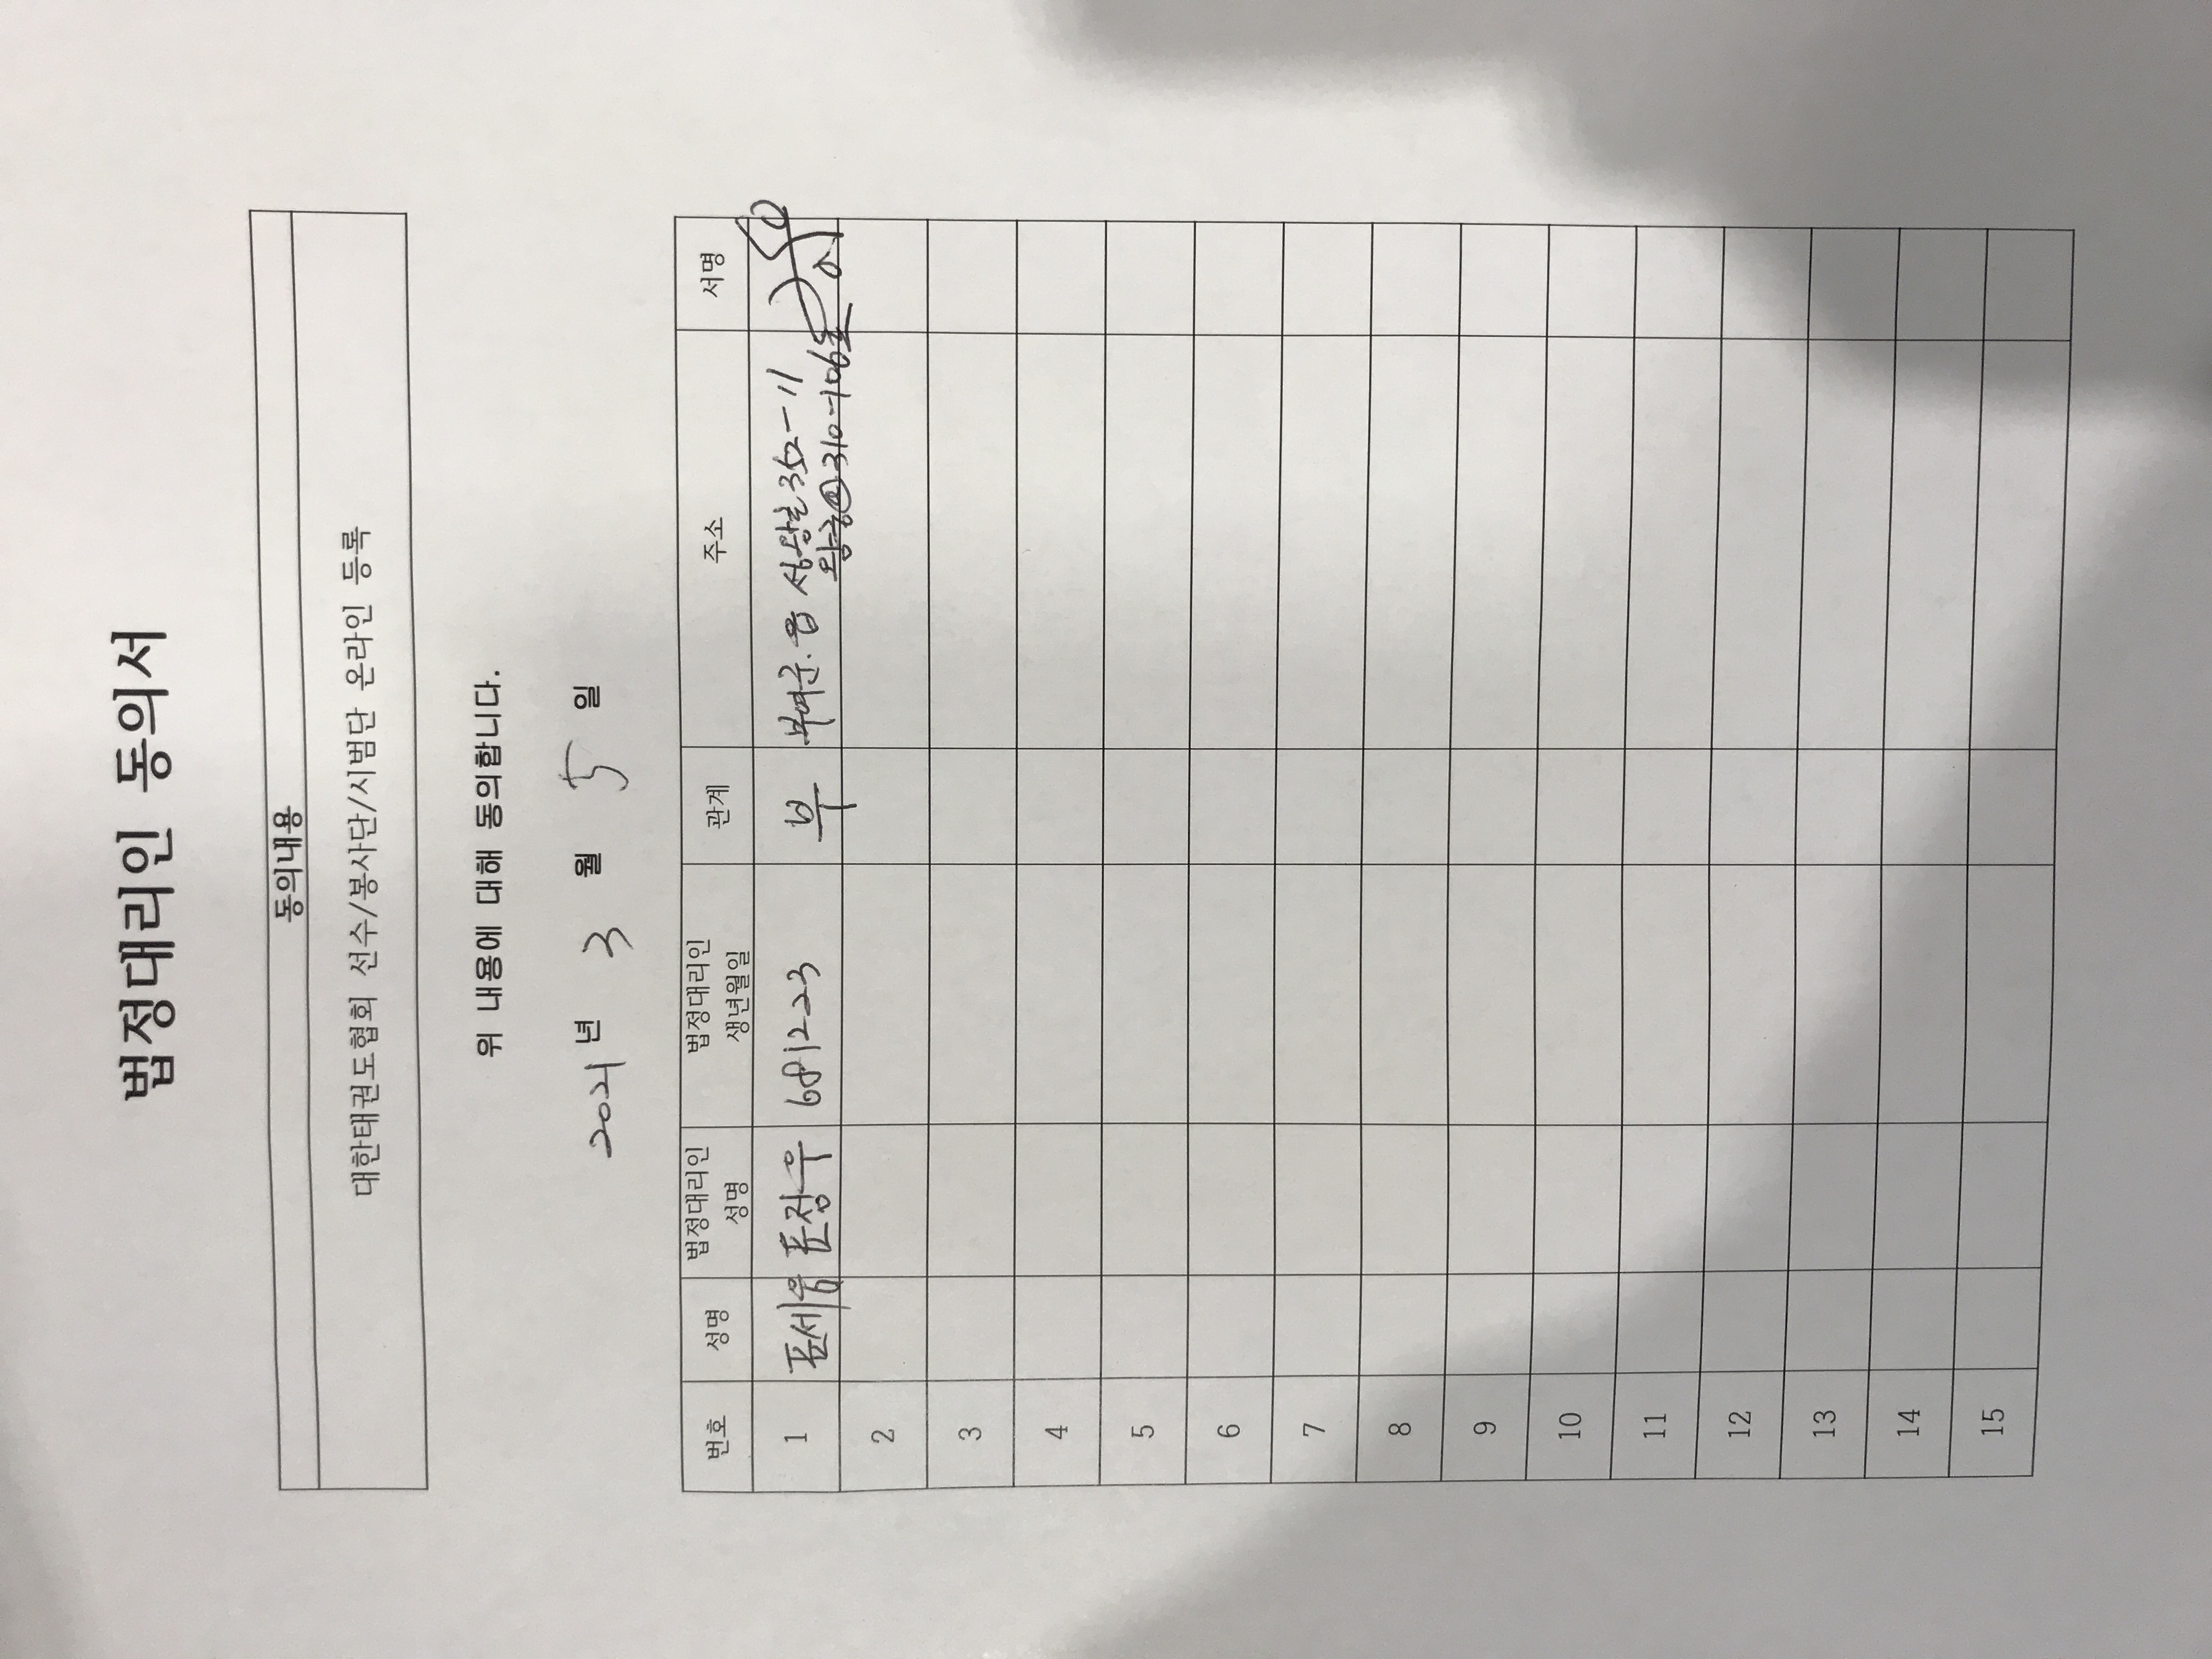 법정대리인 동의서
동의내용
대한태권도협회 선수/봉사단/시범단 온라인 등록
위 내용에 대해 동의합니다.
2021 년 3 월 5 일
번호 성명 법정대리인 성명 법정대리인 생년월일 관계 주소 서명
1 표세움 표정우 681223 부 부여군.읍 성왕로 350-11
310-106호
2
3
4
5
6
7
8
9
10
11
12
13
14
15